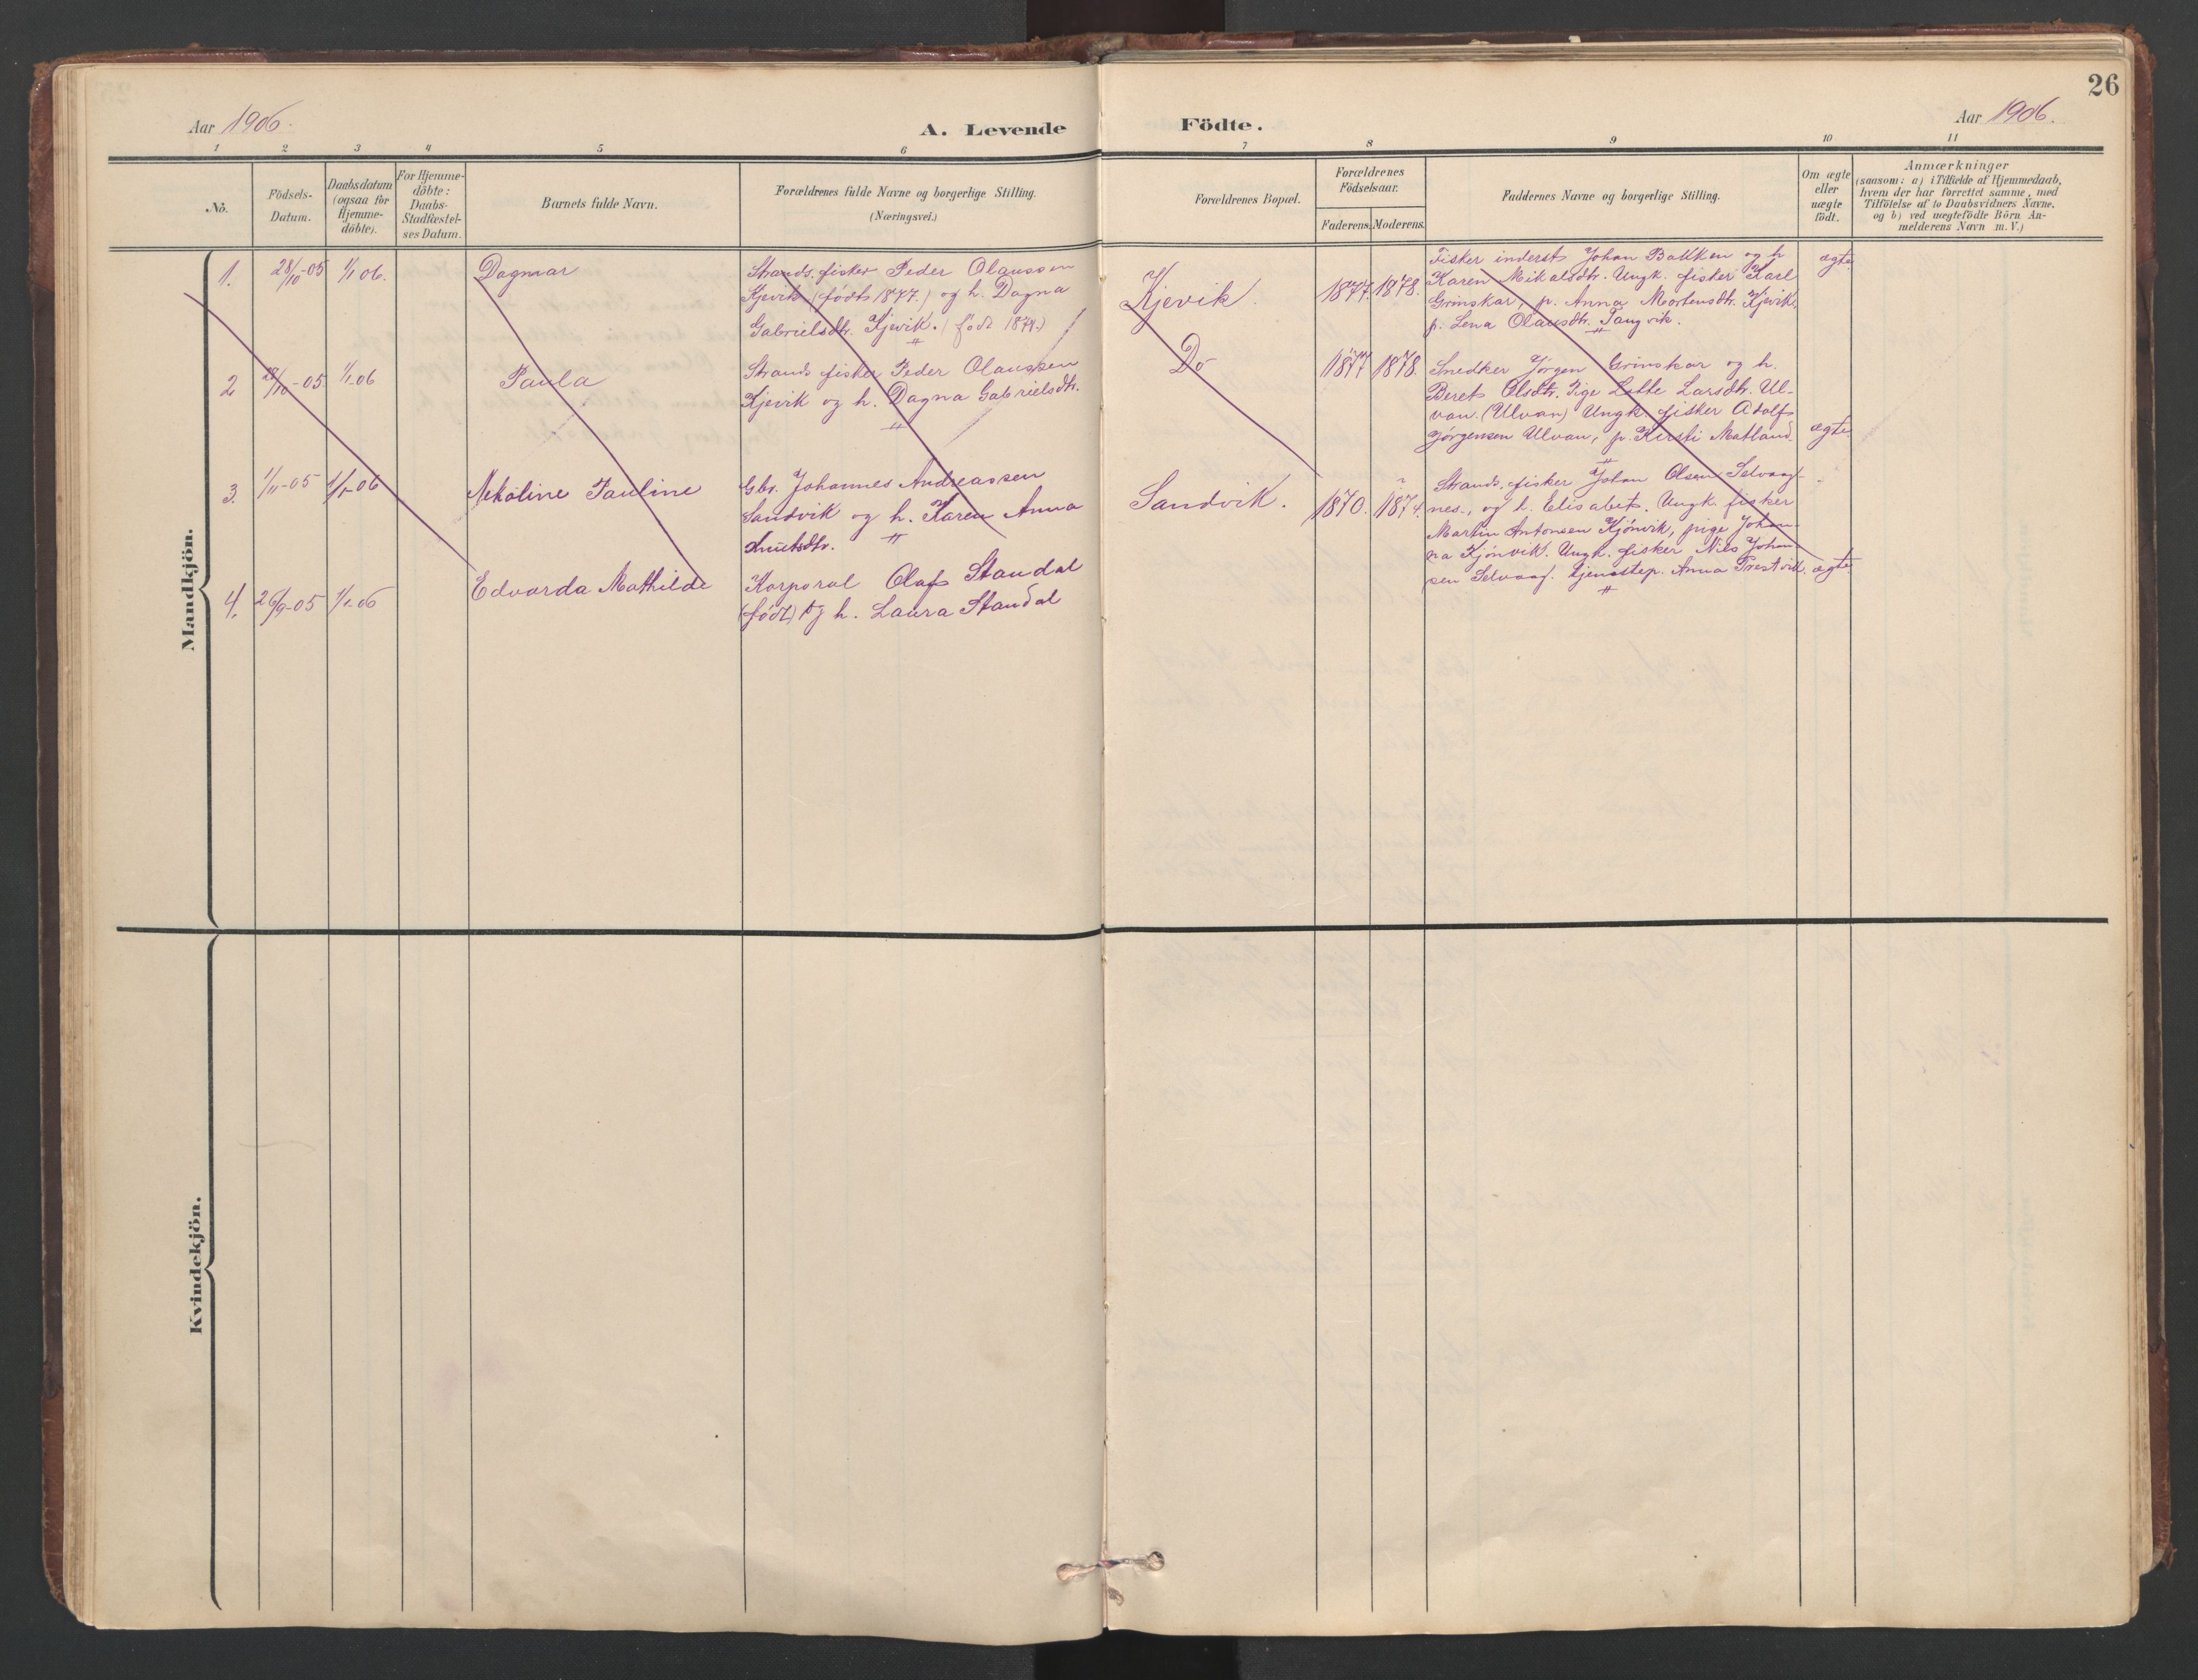 26
Aar 1906.
A. Levende Födte.
Aar 1906.
1 2 3 4 5 6 7 8 9 10 11
No.
Födsels-
Datum.
Daabsdatum
(ogsaa for
Hjemme-
döbte).
For Hjemme-
döbte:
Daabs-
Stadfæstel-
ses Datum.
Barnets fulde Navn.
Forældrenes fulde Navne og borgerlige Stilling.
(Næringsvei.)
Forældrenes Bopæl.
Forældrenes
Födselsaar.
Faderens. Moderens.
Faddernes Navne og borgerlige Stilling.
Om ægte
eller
uægte
födt.
Anmærkninger
(saasom: a) i Tilfælde af Hjemmedaab,
hvem der har forrettet samme, med
Tilföielse af to Daabsvidners Navne,
og b) ved uægtefödte Börn An-
melderens Navn m. V.)
Mandkjön.
1. 28/10-05 1/1 06. Dagmar
Strands. fisker Peder Olaussen
Kjevik (født 1877.) og h. Dagna
Gabrielsdtr. Kjevik. (født 1874.)
Kjevik. 1877. 1878.
Fisker inderst Johan Bakken og h
Karen Mikalsdtr. Ungk. fisker Karl
Grinskar, p. Anna Mortensdtr. Kjevik,
p. Lena Olausdtr. Tangvik.
ægte
2 28/10-05. 1/1-06 Paula
Strands fisker Peder Olaussen
Kjevik og h. Dagna Gabrielsdtr.
Do 1877 1878.
Snedker Jørgen Grinskar og h.
Beret Olsdtr. Pige Lotte Larsdtr. Ul-
van. (Ulvan) Ungk. fisker Adolf
Jørgensen Ulvan, p. Kirsti Matland.
ægte
3. 1/11-05 1/1-06 Nekoline Pauline
Gbr. Johannes Andreassen
Sandvik og h. Karen Anna
Knutsdtr.
Sandvik. 1870. 1874.
Strands. fisker Johan Olsen Selvaag-
nes., og h. Elisabet. Ungk. fisker
Martin Antonsen Kjönvik, pige Johan-
na Kjönvik. Ungk. fisker Nils Johan-
sen Selvaag. Tjenstep. Anna Prestvik.
ægte
4. 26/9-05 1/1-06 Edvarda Mathilde
Korporal Olaf Standal
(født) og h. Laura Standal
Kvindekjön.